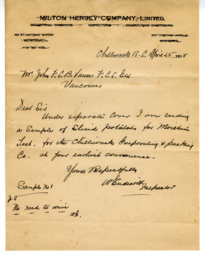 MILTON HERSEY COMPANY, LIMITED.
Chilliwack B.C. Apr 25
Mr. John F.C.B. Vance F.C.S. Esq
Vancouver
Dear Sir
Under separate cover I am sending
a Sample of Sliced potatoes for Moisture
Test. for the Chilliwack Evaporating & packing
Co. at your earliest convenience.
Yours Respectfully
Inspector
Sample No 1
P.S
No need to wire